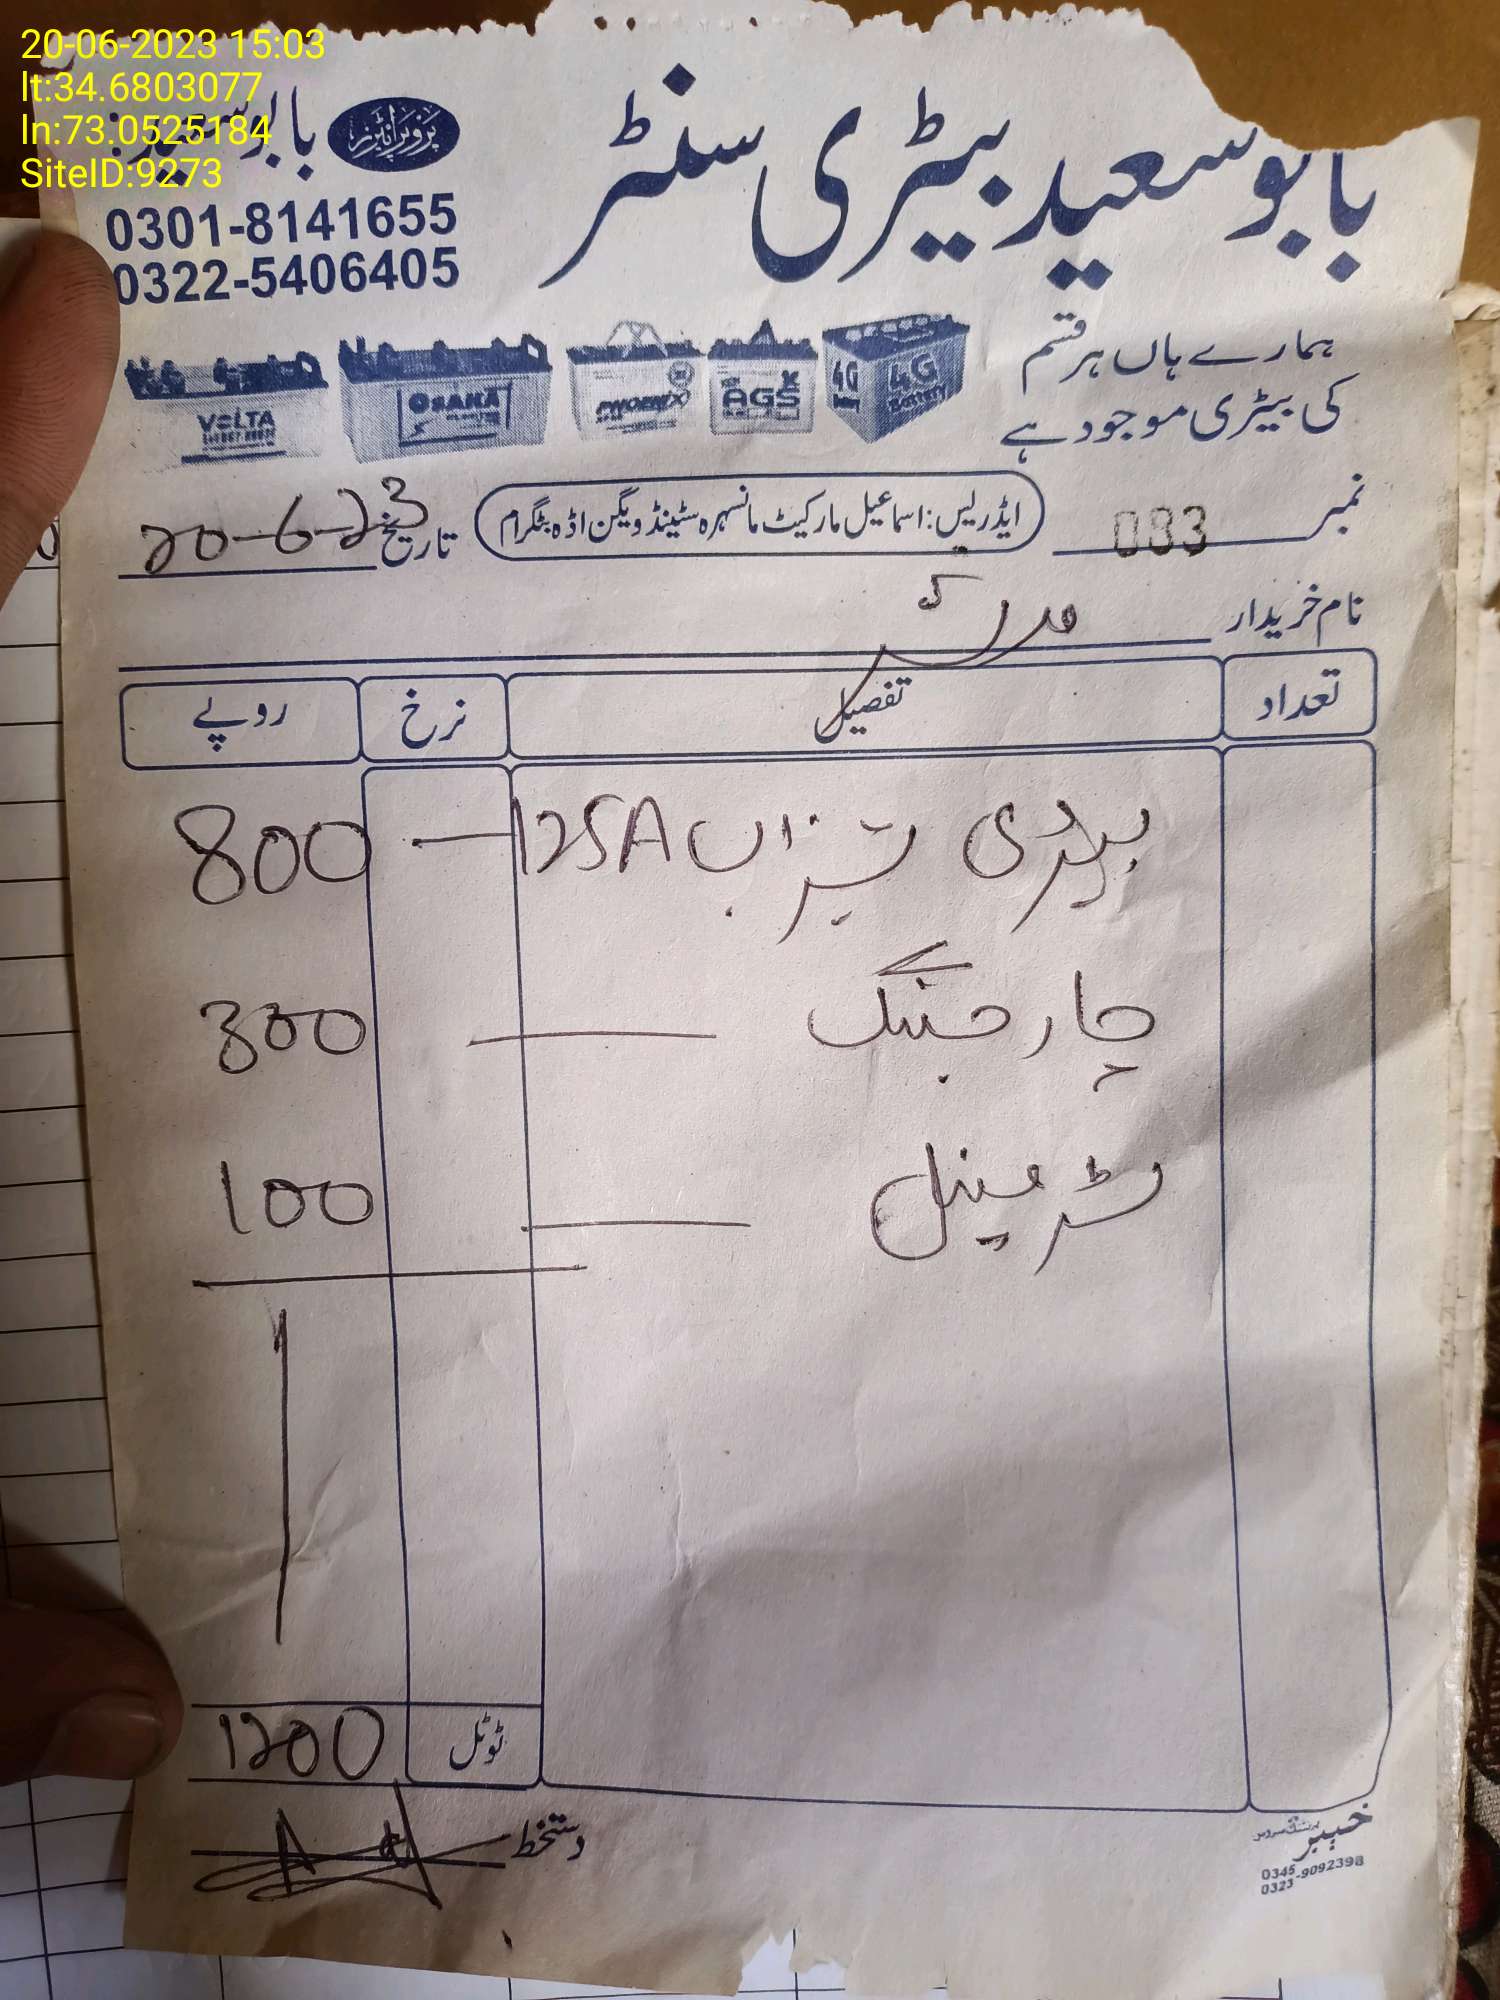 20-06-2023 15:03
lt:34.6803077
ln:73.0525184
SiteID:9273
بابو سعید بیٹری سنٹر
پروپرائٹرز بابو سعید:
0301-8141655
0322-5406405
ہمارے ہاں ہر قسم
کی بیٹری موجود ہے
VOLTA
OSAKA
PHOENIX
AGS
4G
4G
BATTERY
نمبر 083
ایڈریس: اسماعیل مارکیٹ مانسہرہ سٹینڈ ویگن اڈہ بٹگرام
تاریخ 20-6-23
نام خریدار
تعداد تفصیل نرخ روپے
بیٹری تیزاب 125A — 800
چارجنگ — 300
ٹرمینل — 100
ٹوٹل 1200
دستخط
خیبر پرنٹنگ سروس
0345
0323-9092398